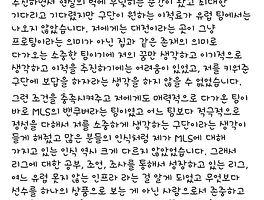 추진하면서 현실의 벽에 부딪히는 순간이 왔고 최대한
기다리고 기다렸지만 구단이 원하는 이적료가 유럽 팀에서는
나오지 않았습니다. 저에게는 대전이라는 곳이 그냥
프로팀이라는 의미가 아닌 집과 같은 존재의 의미로
다가오는 소중한 팀이기에 저의 꿈만 생각하고 이기적으로
생각하고 이적을 추진하기에는 어려움이 있었고, 저를 키워준
구단에 보답을 하자라는 생각을 하지 않을 수 없었습니다.
그런 조건을 충족시켜주고 저에게도 매력적으로 다가온 팀이
바로 MLS의 밴쿠버라는 팀이었고 어느 팀보다 적극적으로
정성을 다해서 저를 소중하게 생각하는 구단이라는 생각이
들게 해줬고 많은 분들의 인식처럼 제가 MLS에 대해
가지고 있는 인식 역시 크게 다르지 않았었습니다. 그래서
리그에 대한 공부, 조언, 조사를 통해서 성장하고 있는 리그,
여느 유럼 못지 않는 인프라 라는 걸 알게 되었고 무엇보다
선수를 하나의 상품으로 보는 게 아닌 사람으로서 존중하고